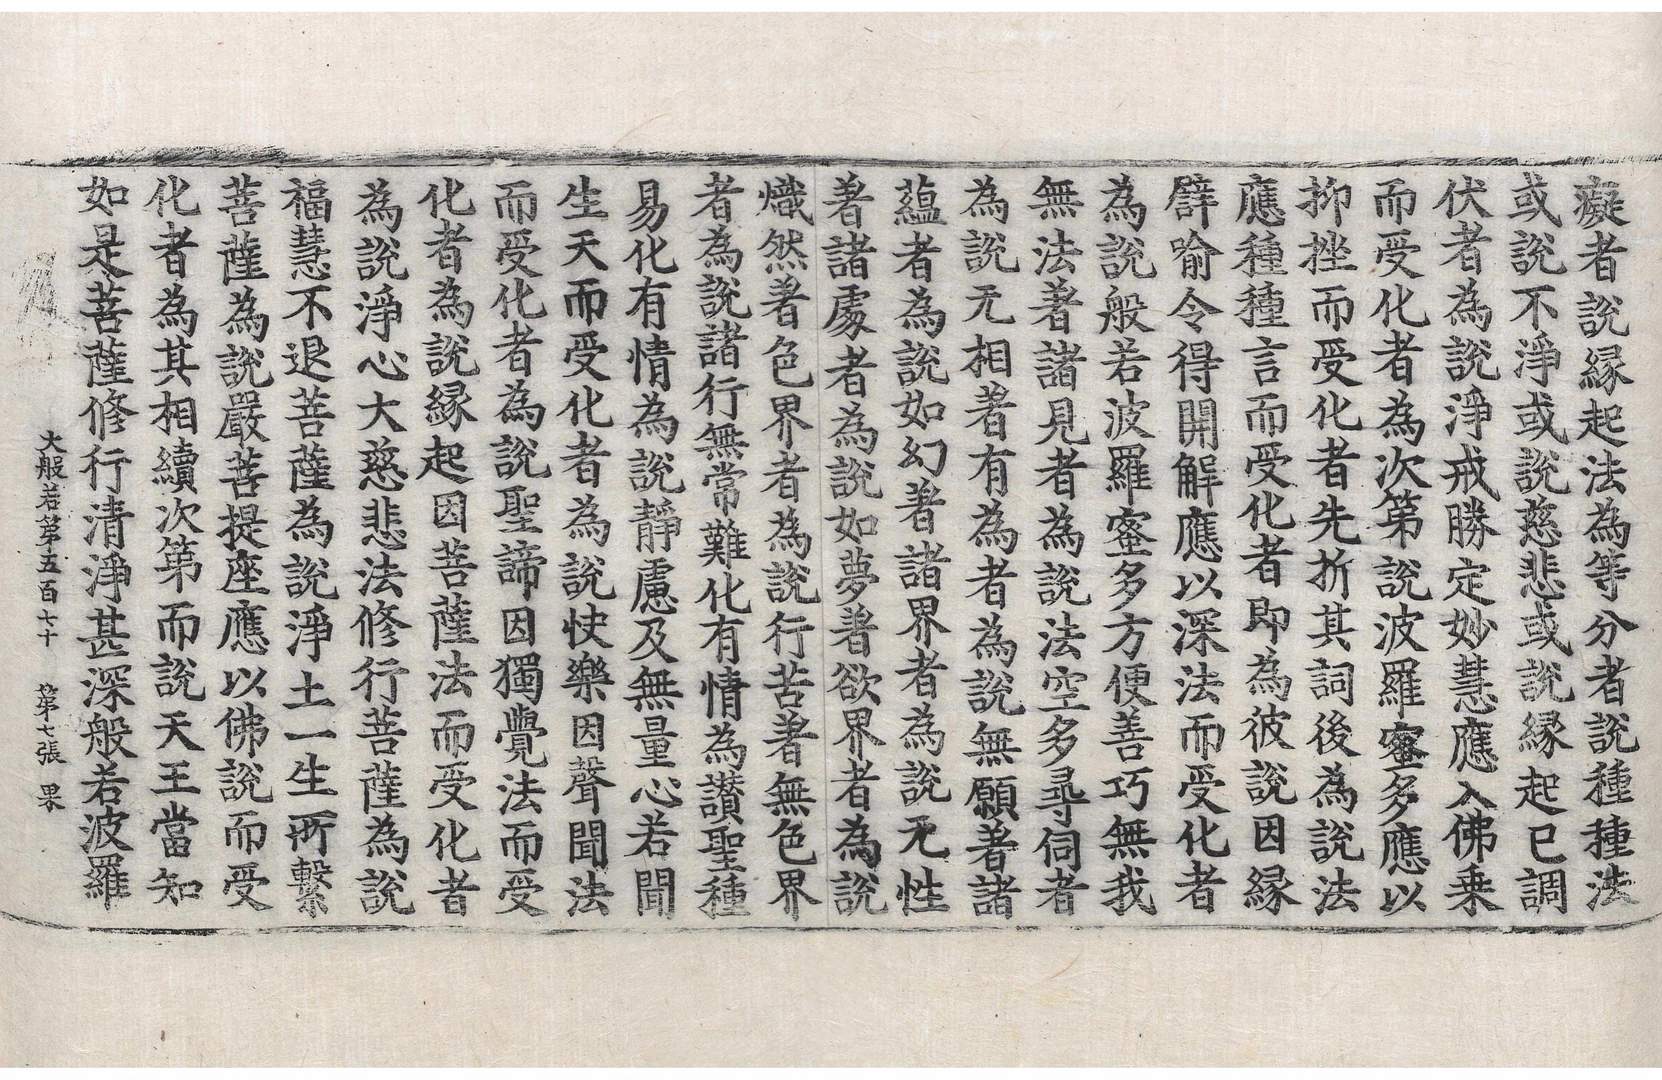 癡者說緣起法為等分者說種種法
或說不淨或說慈悲或說緣起已調
伏者為說淨戒勝定妙慧應入佛乗
而受化者為次第說波羅蜜多應以
抑挫而受化者先折其詞後為說法
應種種言而受化者即為彼說因緣
譬喻令得開解應以深法而受化者
為說般若波羅蜜多方便善巧無我
無法著諸見者為說法空多尋伺者
為說无相著有為者為說無願著諸
蘊者為說如幻著諸界者為說无性
著諸處者為說如夢著欲界者為說
熾然著色界者為說行苦著無色界
者為說諸行無常難化有情為讃聖種
易化有情為說靜慮及無量心若聞
生天而受化者為說快樂因聲聞法
而受化者為說聖諦因獨覺法而受
化者為說緣起因菩薩法而受化者
為說淨心大慈悲法修行菩薩為說
福慧不退菩薩為說淨土一生所繫
菩薩為說嚴菩提座應以佛說而受
化者為其相續次第而說天王當知
如是菩薩修行清淨甚深般若波羅
大般若第五百七十 第七張 果